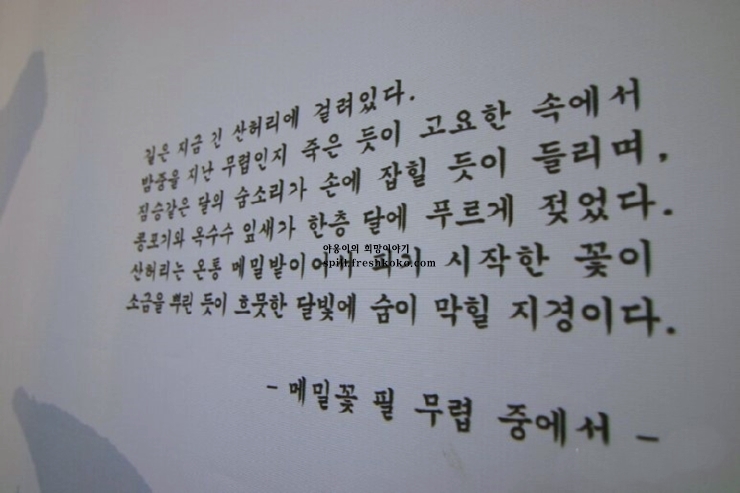 길은 지금 긴 산허리에 걸려있다.
밤중을 지난 무렵인지 죽은 듯이 고요한 속에서
짐승같은 달의 숨소리가 손에 잡힐 듯이 들리며,
콩포기와 옥수수 잎새가 한층 달에 푸르게 젖었다.
야옹이의 희망이야기
산허리는 온통 메밀밭이어서 피기 시작한 꽃이
spill.freshkoko.com
소금을 뿌린 듯이 흐뭇한 달빛에 숨이 막힐 지경이다.
- 메밀꽃 필 무렵 중에서 -